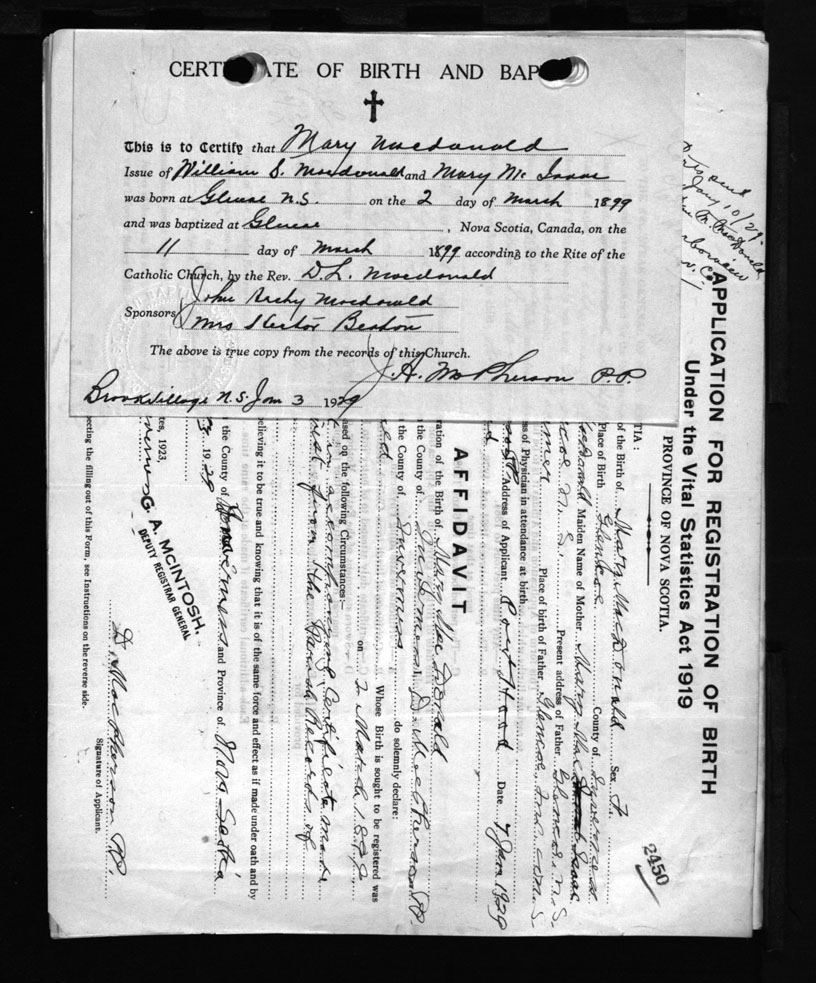 CERT ATE OF BIRTH AND BAP
This is to Certify that Mary Macdonald
Issue of William S. Macdonald and Mary Mc Isaac
was born at Glencoe N.S. on the 2 day of March 1899
and was baptized at Glencoe, Nova Scotia, Canada, on the
11 day of March 1899 according to the Rite of the
Catholic Church, by the Rev. D. L. Macdonald
Sponsors John Archy Macdonald
Mrs Hector Beaton
The above is true copy from the records of this Church.
J. A. McPherson P.P.
Brook Village N.S. Jan 3 1929
Jany 10/29.
APPLICATION FOR REGISTRATION OF BIRTH
Under the Vital Statistics Act 1919
PROVINCE OF NOVA SCOTIA.
2450
TIA:
of the Birth of Mary MacDonald Sex F.
Place of Birth Glencoe County of Inverness
Maiden Name of Mother Mary Mac Isaac
Present address of Father Glencoe N.S.
Place of birth of Father Glencoe Inv. Co. N.S.
ss of Physician in attendance at birth
Address of Applicant Port Hood Date 7 Jan 1929
AFFIDAVIT
ration of the Birth of Mary MacDonald
the County of Inverness I, D. MacPherson P.P.
the County of Inverness do solemnly declare:
Whose Birth is sought to be registered was
on 2 March 1899
ased on the following Circumstances:—
an accompanying Certificate made
from the Parish Records of
elieving it to be true and knowing that it is of the same force and effect as if made under oath and by
the County of Inverness and Province of Nova Scotia
19 29
tes, 1923,
G. A. MCINTOSH.
DEPUTY REGISTRAR GENERAL
D. MacPherson P.P.
Signature of Applicant.
ecting the filling out of this Form, see Instructions on the reverse side.